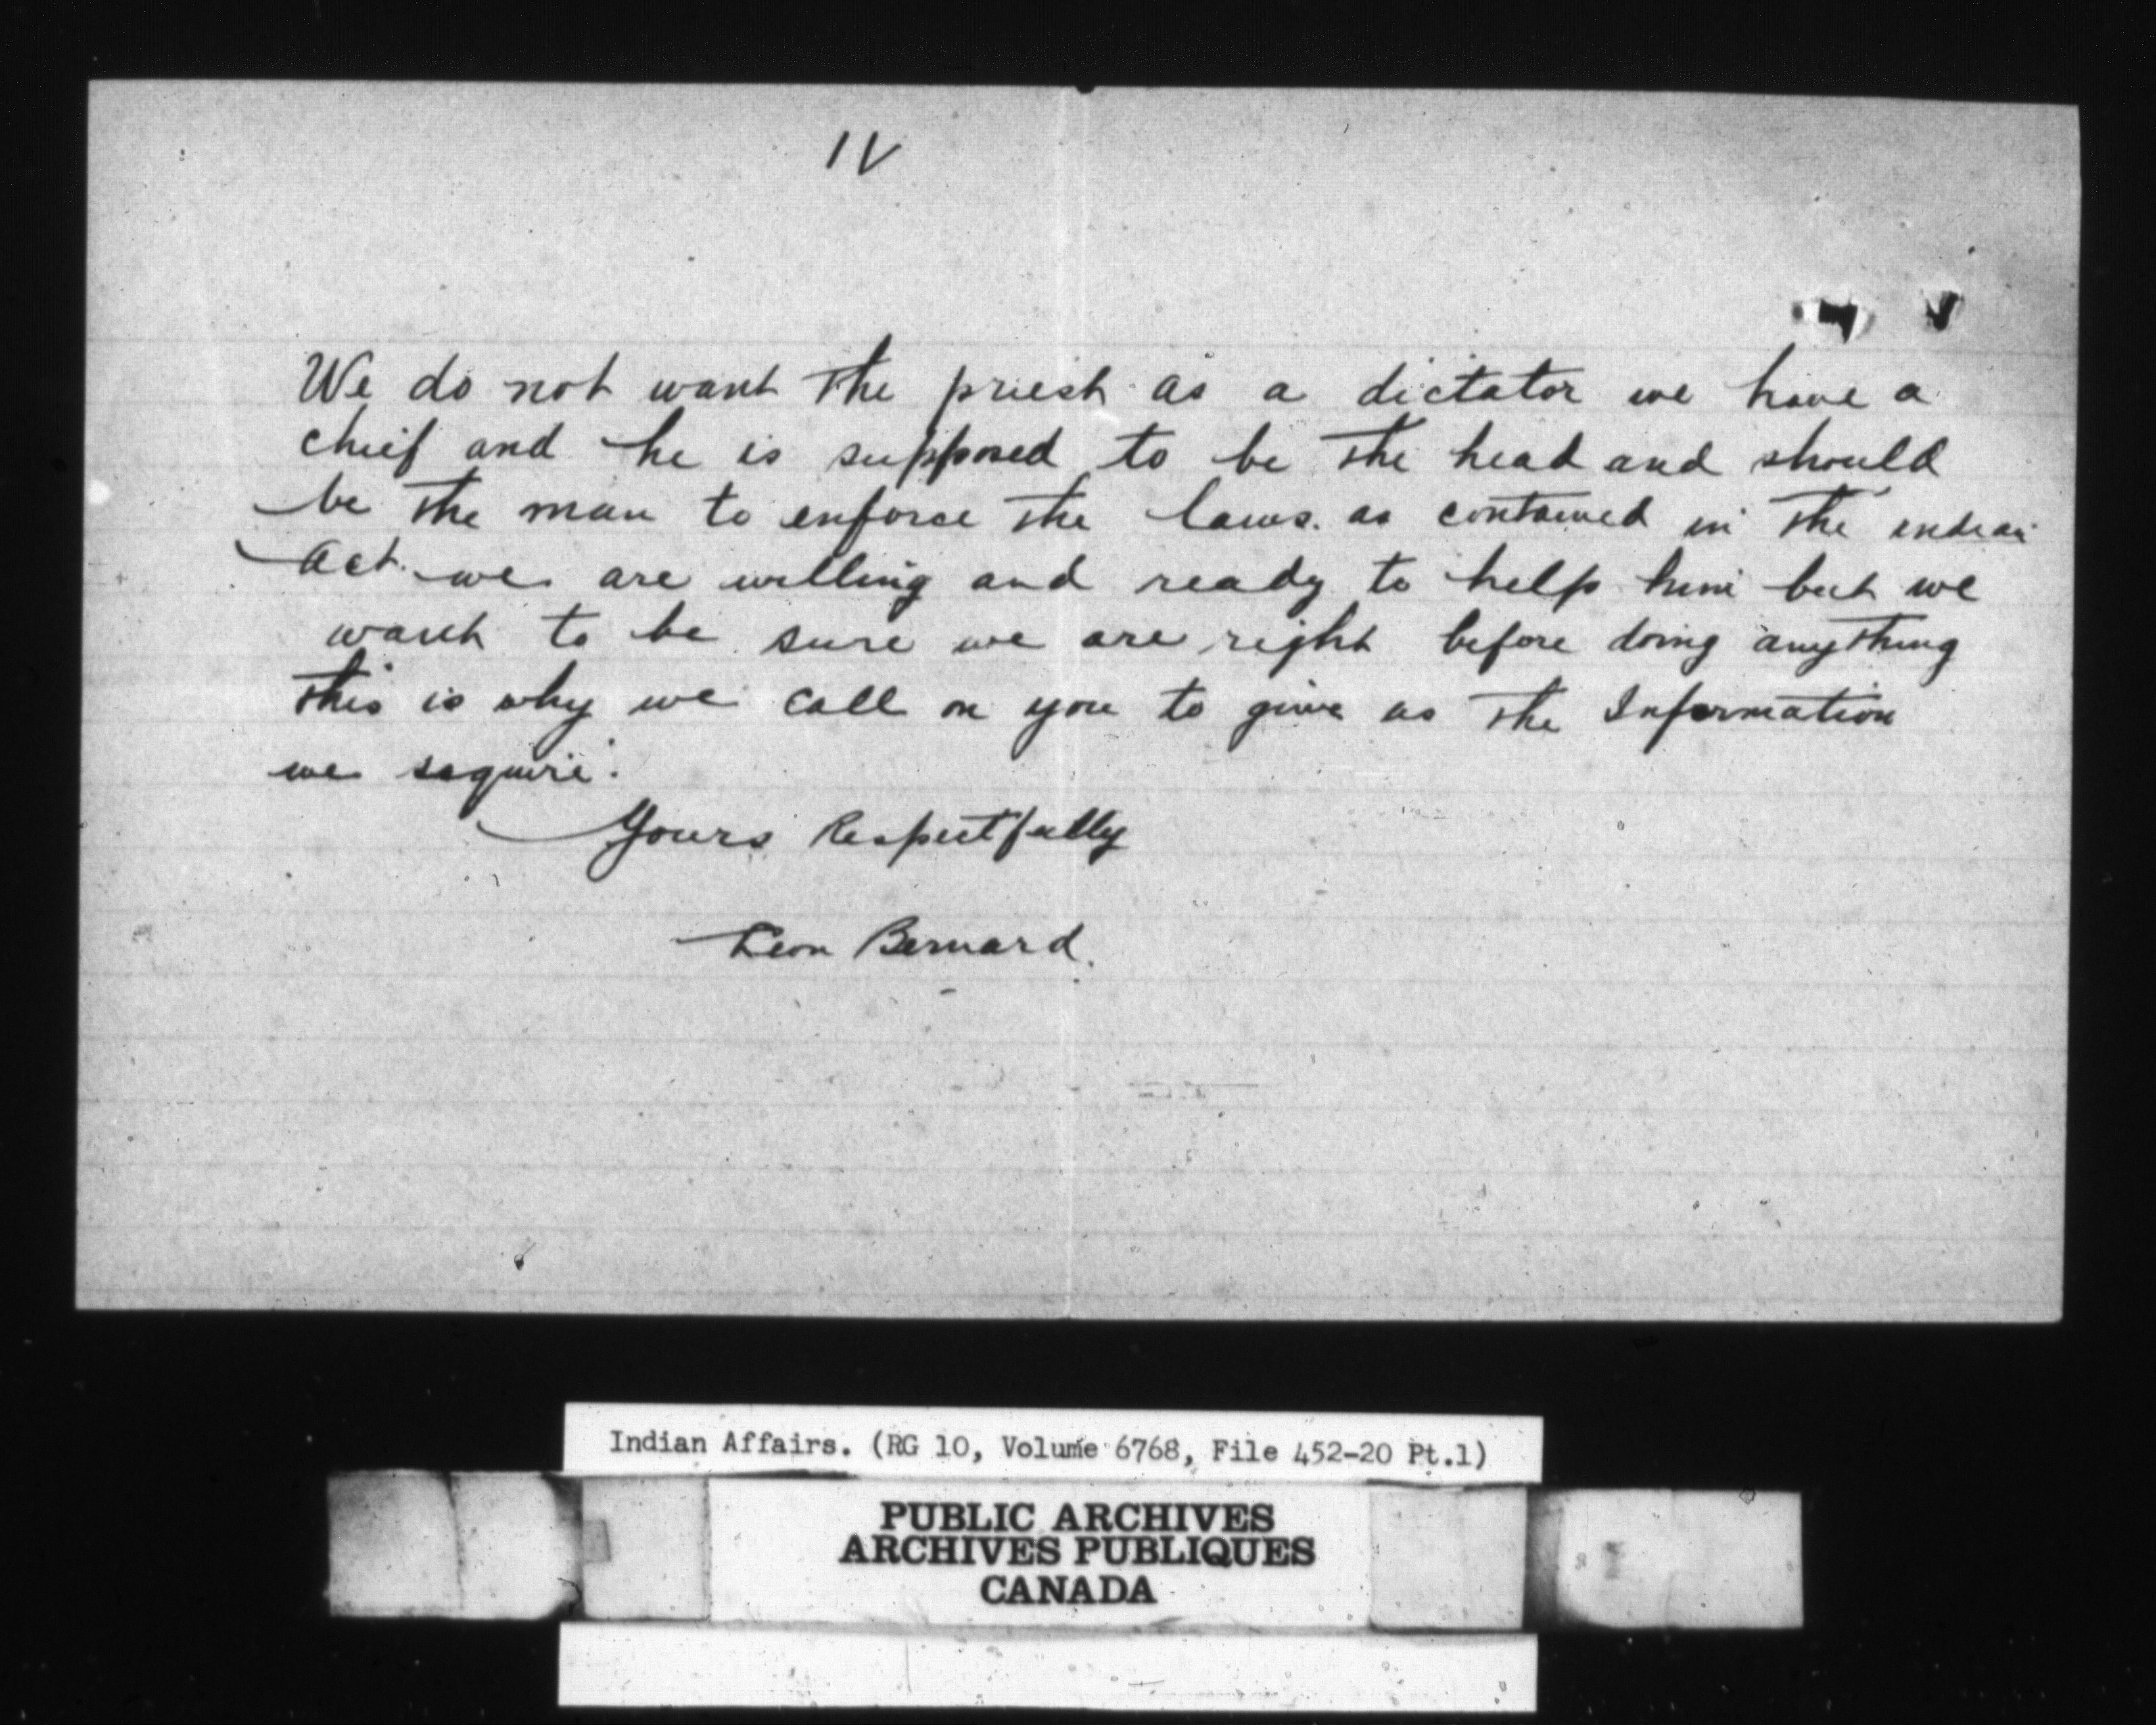 IV
We do not want the priest as a dictator we have a
chief and he is supposed to be the head and should
be the man to enforce the laws. as contained in the indian
act. we are willing and ready to help him but we
want to be sure we are right before doing anything
this is why we call on you to give us the Information
we require.
Yours Respectfully
Leon Bernard.
Indian Affairs. (RG 10, Volume 6768, File 452-20 Pt.1)
PUBLIC ARCHIVES
ARCHIVES PUBLIQUES
CANADA